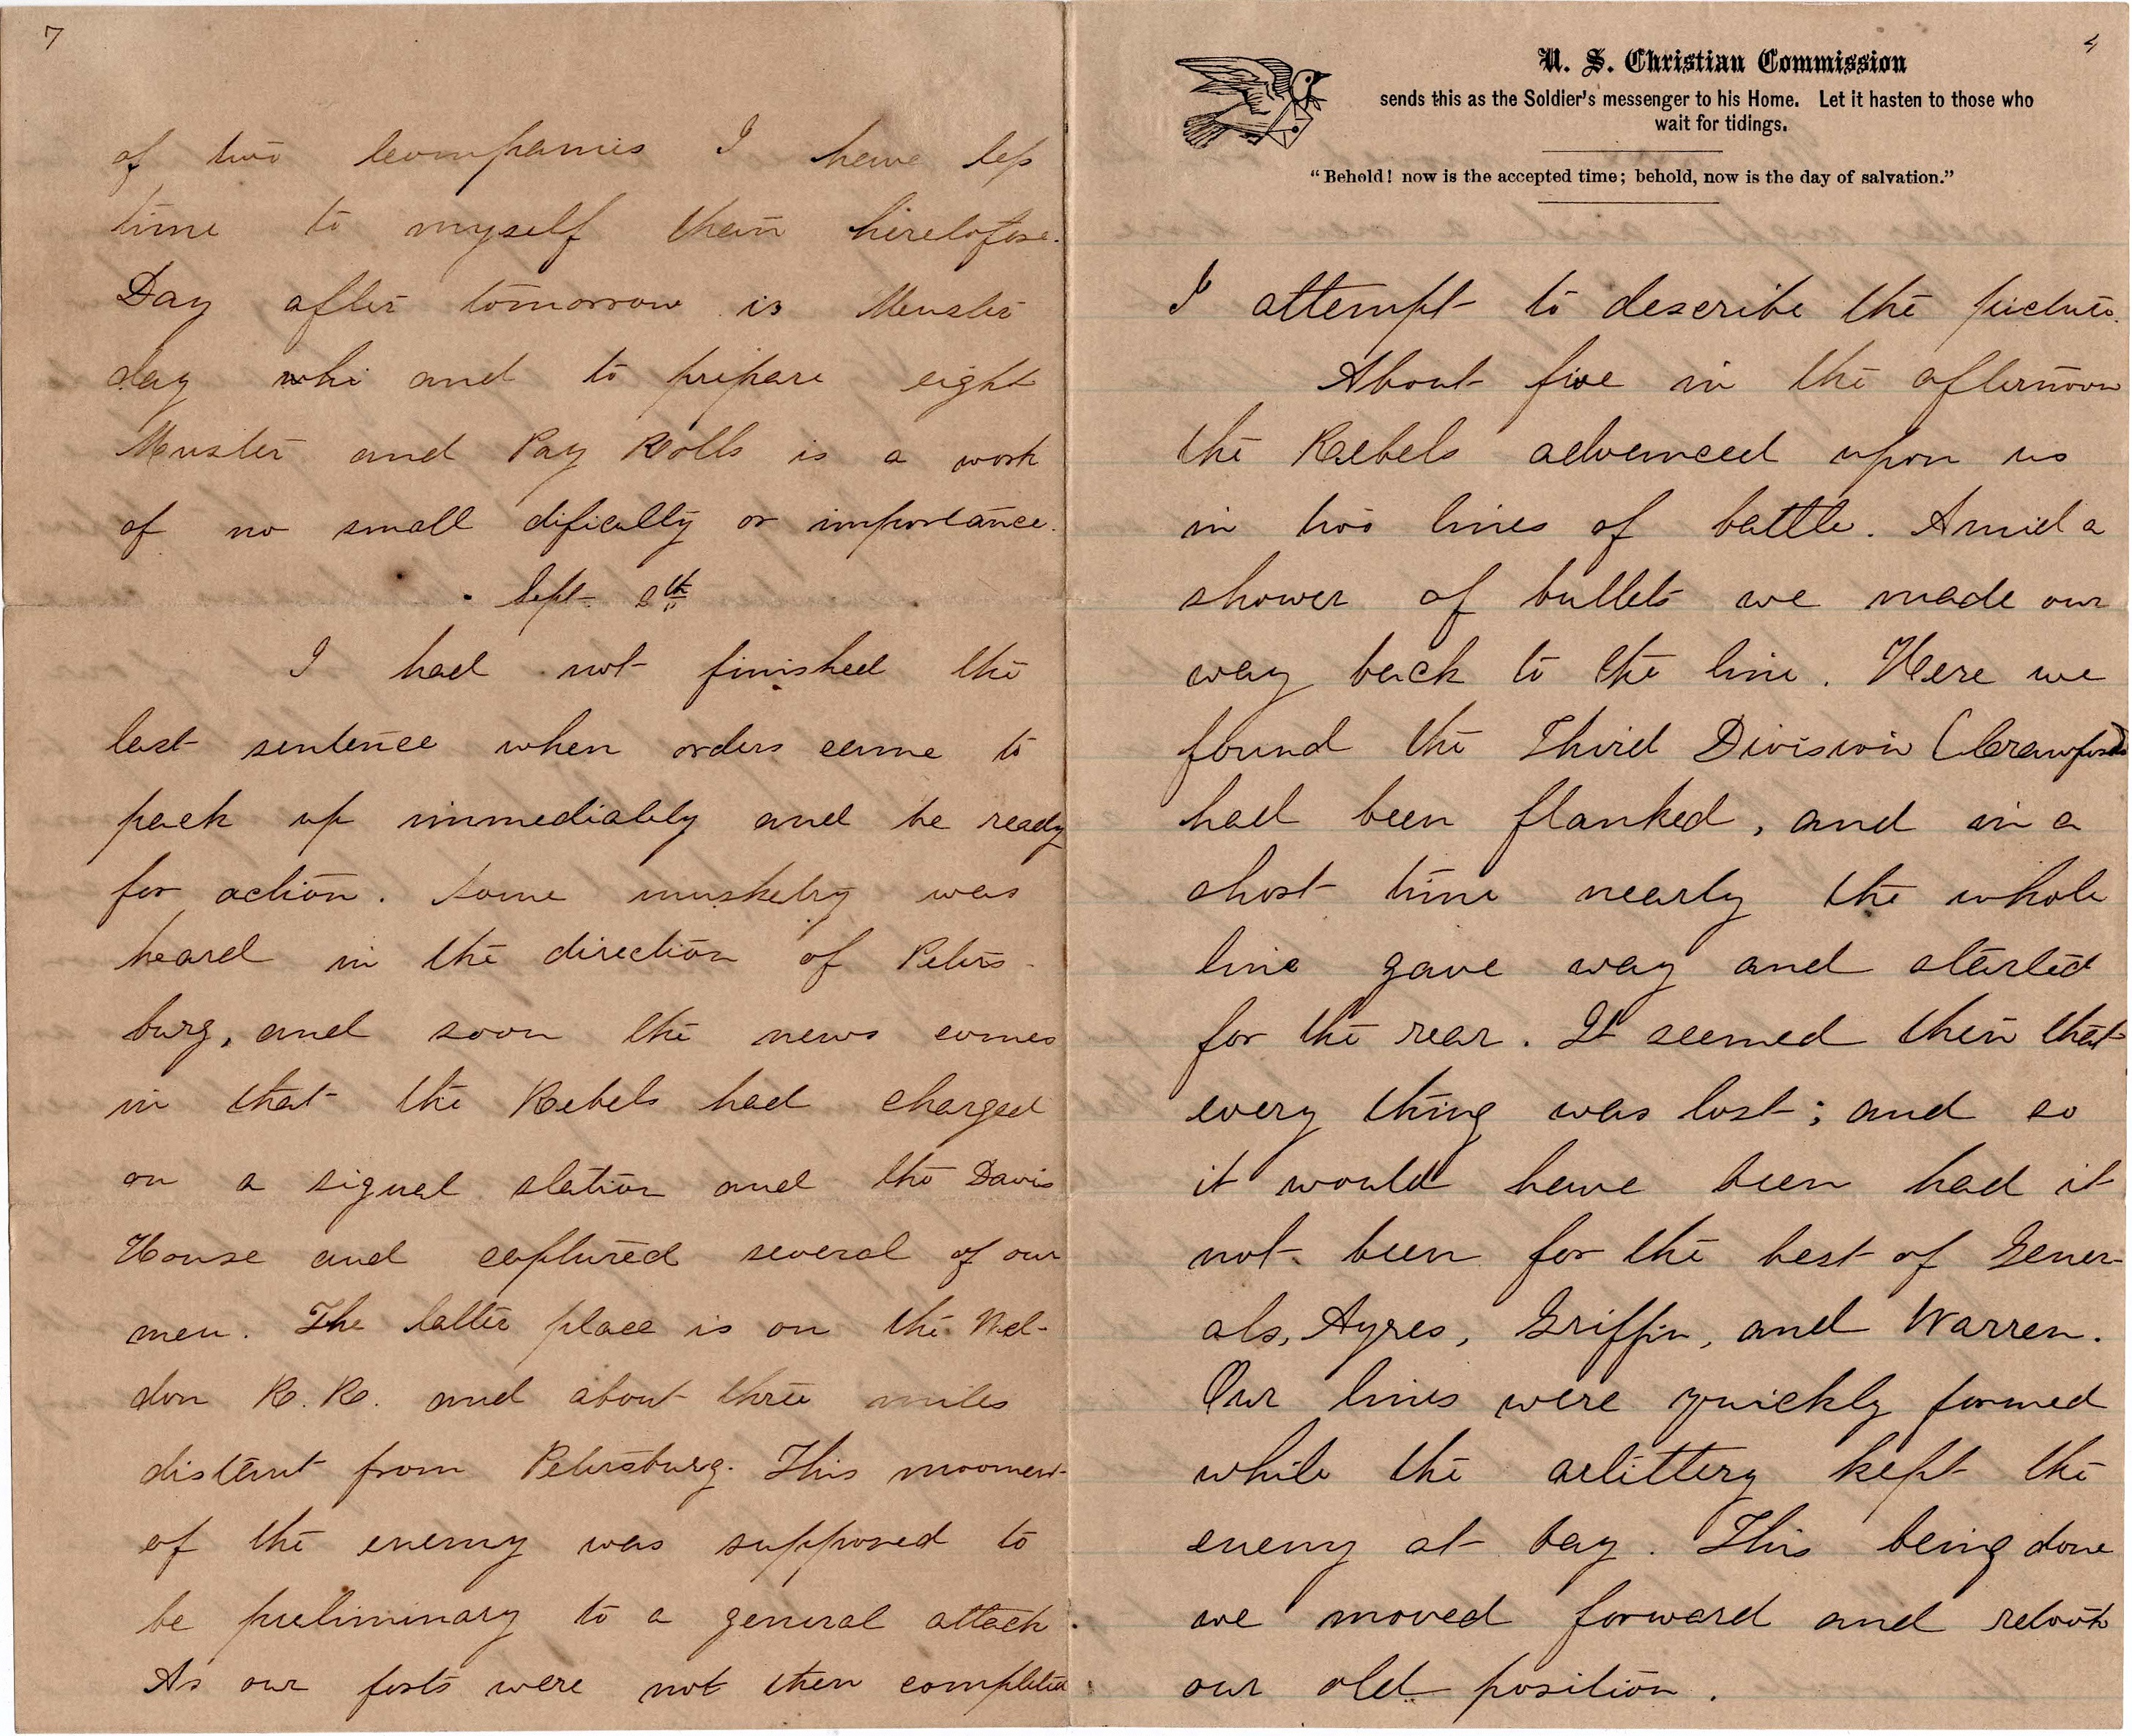 7
of two companies I have less
time to myself than heretofore.
Day after tomorrow is Muster
day and to prepare eight
Muster and Pay Rolls is a work
of no small dificulty or importance.
Sept. 8th
I had not finished the
last sentence when orders came to
pack up immediately and be ready
for action. Some musketry was
heard in the direction of Peters-
burg, and soon the news comes
in that the Rebels had charged
on a signal station and the Davis
House and captured several of our
men. The latter place is on the Wel-
don R.R. and about three miles
distant from Petersburg. This
of the enemy was supposed to
be preliminary to a general attack.
As our forts were not then completed
4
U. S. Christian Commission
sends this as the Soldier's messenger to his Home. Let it hasten to those who
wait for tidings.
"Behold! now is the accepted time; behold, now is the day of salvation."
I attempt to describe the picture.
About five in the afternoon
the Rebels advanced upon us
in two lines of battle. Amid a
shower of bullets we made our
way back to the line. Here we
found the Third Division (Crawfords)
had been flanked, and in a
short time nearly the whole
line gave way and started
for the rear. It seemed then that
every thing was lost; and so
it would have been had it
not been for the best of Gener-
als, Ayres, Griffin, and Warren.
Our lines were quickly formed
while the artillery kept the
enemy at bay. This being done
we moved forward and retook
our old position.